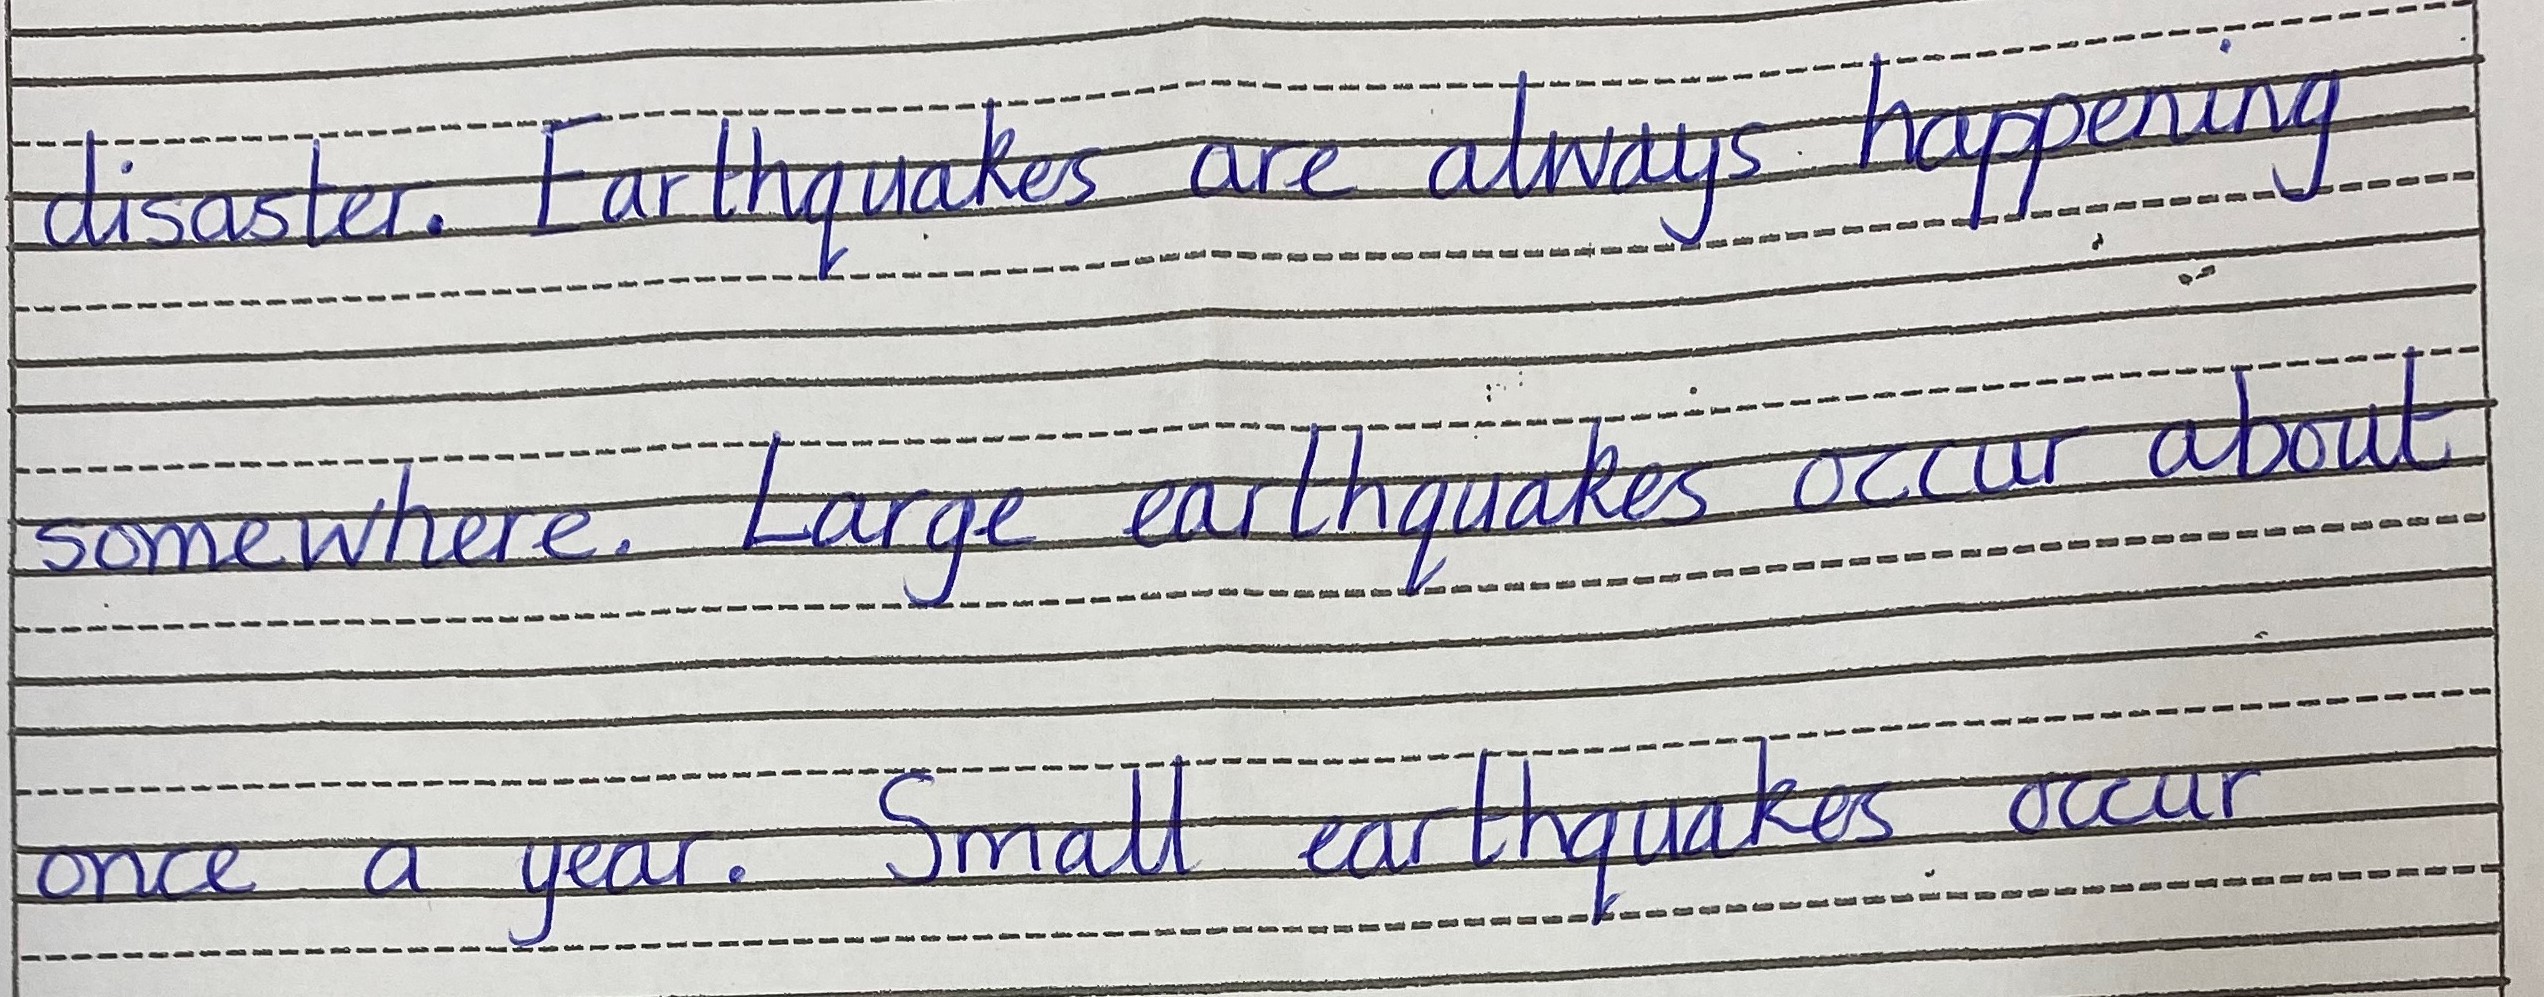 disaster. Earthquakes are always happening
somewhere. Large earthquakes occur about
once a year. Small earthquakes occur